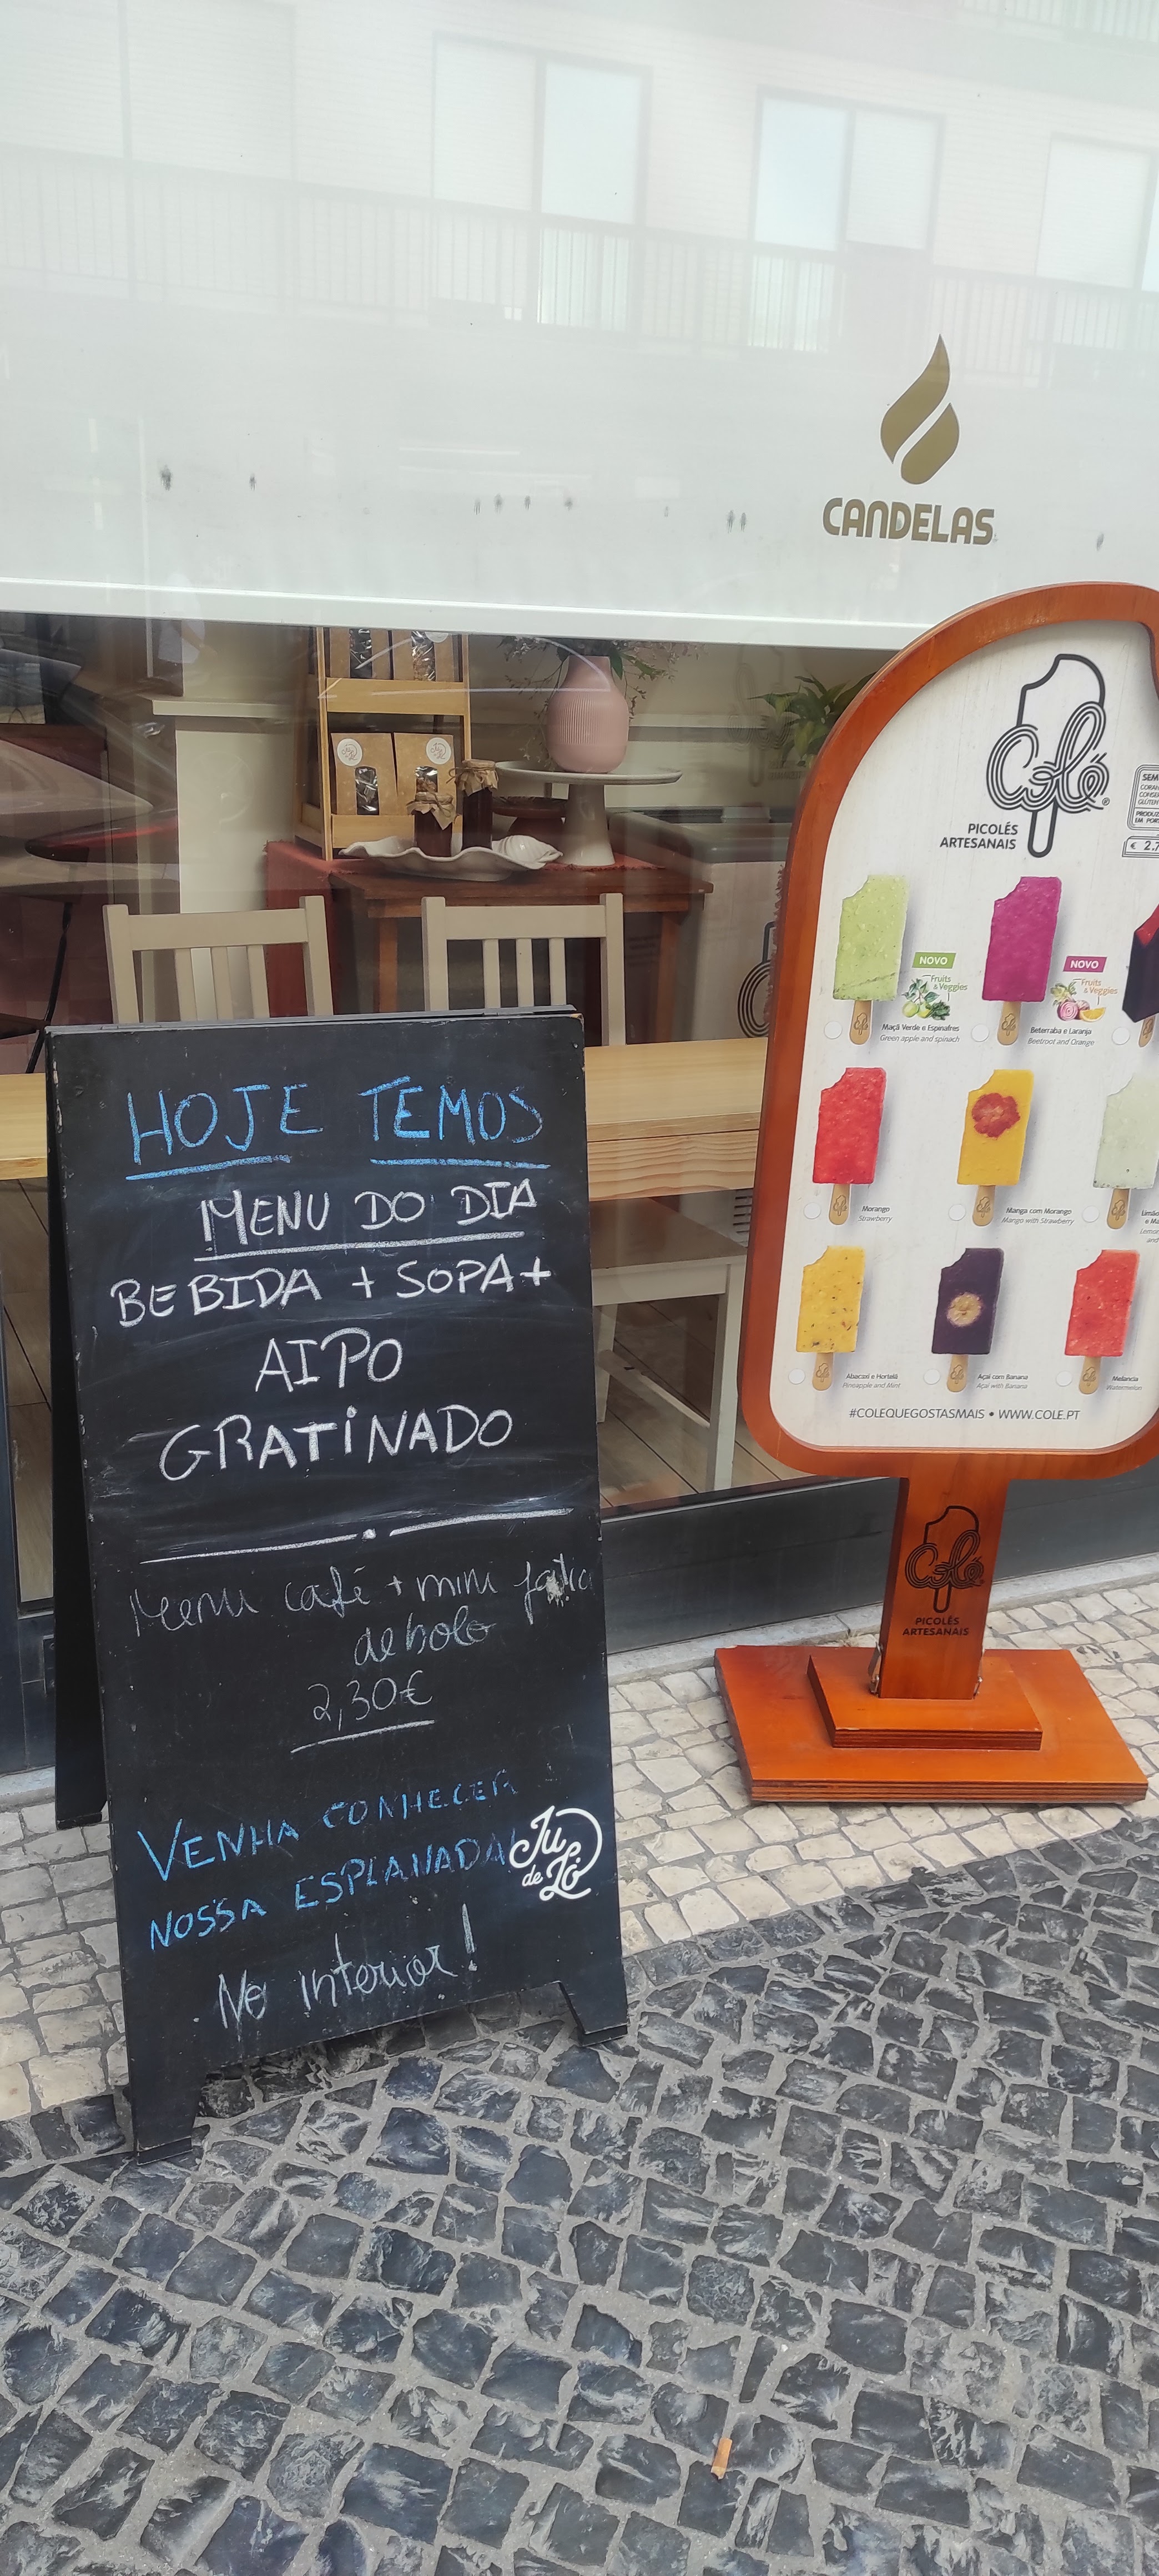 CANDELAS
HOJE TEMOS
MENU DO DIA
BEBIDA + SOPA +
AIPO
GRATINADO
Menu café + mini fatia
de bolo
2,30€
VENHA CONHECER
NOSSA ESPLANADA
No interior!
Ju
de Ló
Colé
PICOLÉS
ARTESANAIS
SEM
PRODUZ
EM POR
€ 2.7
NOVO
Fruits
& Veggies
Maçã Verde e Espinafres
Green apple and spinach
NOVO
Fruits
& Veggies
Beterraba e Laranja
Beetroot and Orange
Morango
Strawberry
Manga com Morango
Mango with Strawberry
Abacaxi e Hortelã
Pineapple and Mint
Açaí com Banana
Açaí with Banana
Melancia
Watermelon
#COLEQUEGOSTASMAIS • WWW.COLE.PT
Colé
PICOLÉS
ARTESANAIS